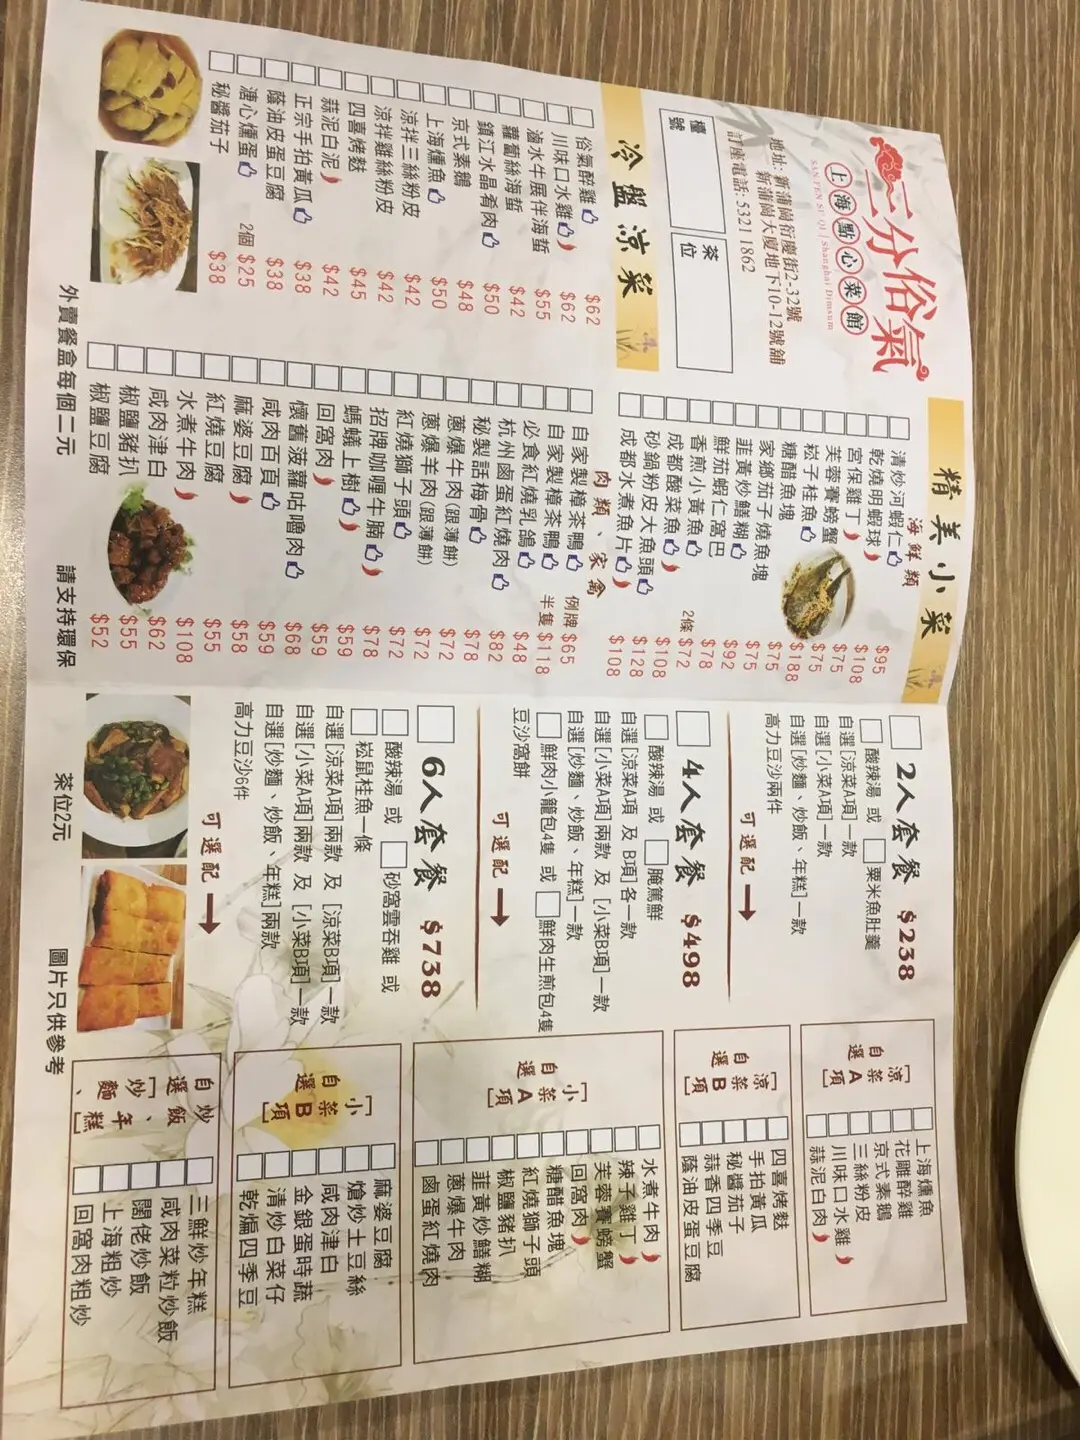 三分俗氣
上海點心菜館
SAN FEN SU QI | Shanghai Dimsum
地址: 新蒲崗衍慶街2-32號
新蒲崗大廈地下10-12號舖
訂座電話: 5321 1862
檯號
茶位
冷盤涼菜
俗氣醉雞 $62
川味口水雞 $62
滷水牛展伴海蜇 $55
蘿蔔絲海蜇 $42
鎮江水晶肴肉 $50
京式素鵝 $48
上海燻魚 $50
涼拌三絲粉皮 $42
涼拌雞絲粉皮 $42
四喜烤麩 $45
蒜泥白泥 $42
正宗手拍黃瓜 $38
蔭油皮蛋豆腐 $38
溏心燻蛋 2個 $25
秘醬茄子 $38
精美小菜
海鮮類
清炒河蝦仁 $95
乾燒明蝦球 $108
宮保雞丁 $75
芙蓉賽螃蟹 $75
崧子桂魚 $188
糖醋魚塊 $75
家鄉茄子燒魚塊 $75
韭黃炒鱔糊 $92
鮮茄蝦仁窩巴 $78
香煎小黃魚 2條 $72
成都酸菜魚 $108
砂鍋粉皮大魚頭 $128
成都水煮魚片 $108
肉類、家禽
自家製樟茶鴨 例牌 $65
自家製樟茶鴨 半隻 $118
必食紅燒乳鴿 $48
杭州鹵蛋紅燒肉 $82
秘製話梅骨 $78
蔥爆牛肉(跟薄餅) $72
蔥爆羊肉(跟薄餅) $72
紅燒獅子頭 $72
招牌咖喱牛腩 $78
螞蟻上樹 $59
回窩肉 $59
懷舊菠蘿咕嚕肉 $68
咸肉百頁 $59
麻婆豆腐 $58
紅燒豆腐 $55
水煮牛肉 $108
咸肉津白 $62
椒鹽豬扒 $55
椒鹽豆腐 $52
外賣餐盒每個二元
請支持環保
茶位2元
圖片只供參考
2人套餐 $238
酸辣湯 或 粟米魚肚羹
自選[涼菜A項]一款
自選[小菜A項]一款
自選[炒麵、炒飯、年糕]一款
高力豆沙兩件
可選配
4人套餐 $498
酸辣湯 或 腌篤鮮
自選[涼菜A項 及 B項]各一款
自選[小菜A項]兩款 及 [小菜B項]一款
自選[炒麵、炒飯、年糕]一款
鮮肉小籠包4隻 或 鮮肉生煎包4隻
豆沙窩餅
可選配
6人套餐 $738
酸辣湯 或 砂窩雲吞雞 或
崧鼠桂魚一條
自選[涼菜A項]兩款 及 [涼菜B項]一款
自選[小菜A項]兩款 及 [小菜B項]一款
自選[炒麵、炒飯、年糕]兩款
高力豆沙6件
可選配
自選[涼菜A項]
上海燻魚
花雕醉雞
京式素鵝
三絲粉皮
川味口水雞
蒜泥白肉
自選[涼菜B項]
四喜烤麩
手拍黃瓜
秘醬茄子
蒜香四季豆
蔭油皮蛋豆腐
自選[小菜A項]
水煮牛肉
辣子雞丁
芙蓉賽螃蟹
回窩肉
糖醋魚塊
紅燒獅子頭
椒鹽豬扒
韭黃炒鱔糊
蔥爆牛肉
鹵蛋紅燒肉
自選[小菜B項]
麻婆豆腐
熗炒土豆絲
咸肉津白
金銀蛋時蔬
清炒白菜仔
乾煸四季豆
自選[炒麵、炒飯、年糕]
三鮮炒年糕
咸肉菜粒炒飯
闊佬炒飯
上海粗炒
回窩肉粗炒